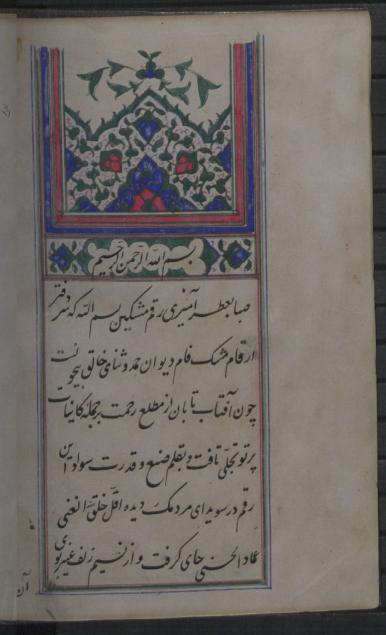 بسم الله الرحمن الرحیم
صبا بعطر آمیزی رقم مشکین بسم الله که سر دفتر
ارقام مشک فام دیوان حمد و ثنای خالق بیچونست
چون آفتاب تابان از مطلع رحمت بر جمله کاینات
پرتو تجلی تافت و بقلم صنع و قدرت سواد این
رقم در سویدای مردمک دیده اقل خلق الغنی
عماد الحسنی جای گرفت و از نسیم زلف عنبربوی
آن